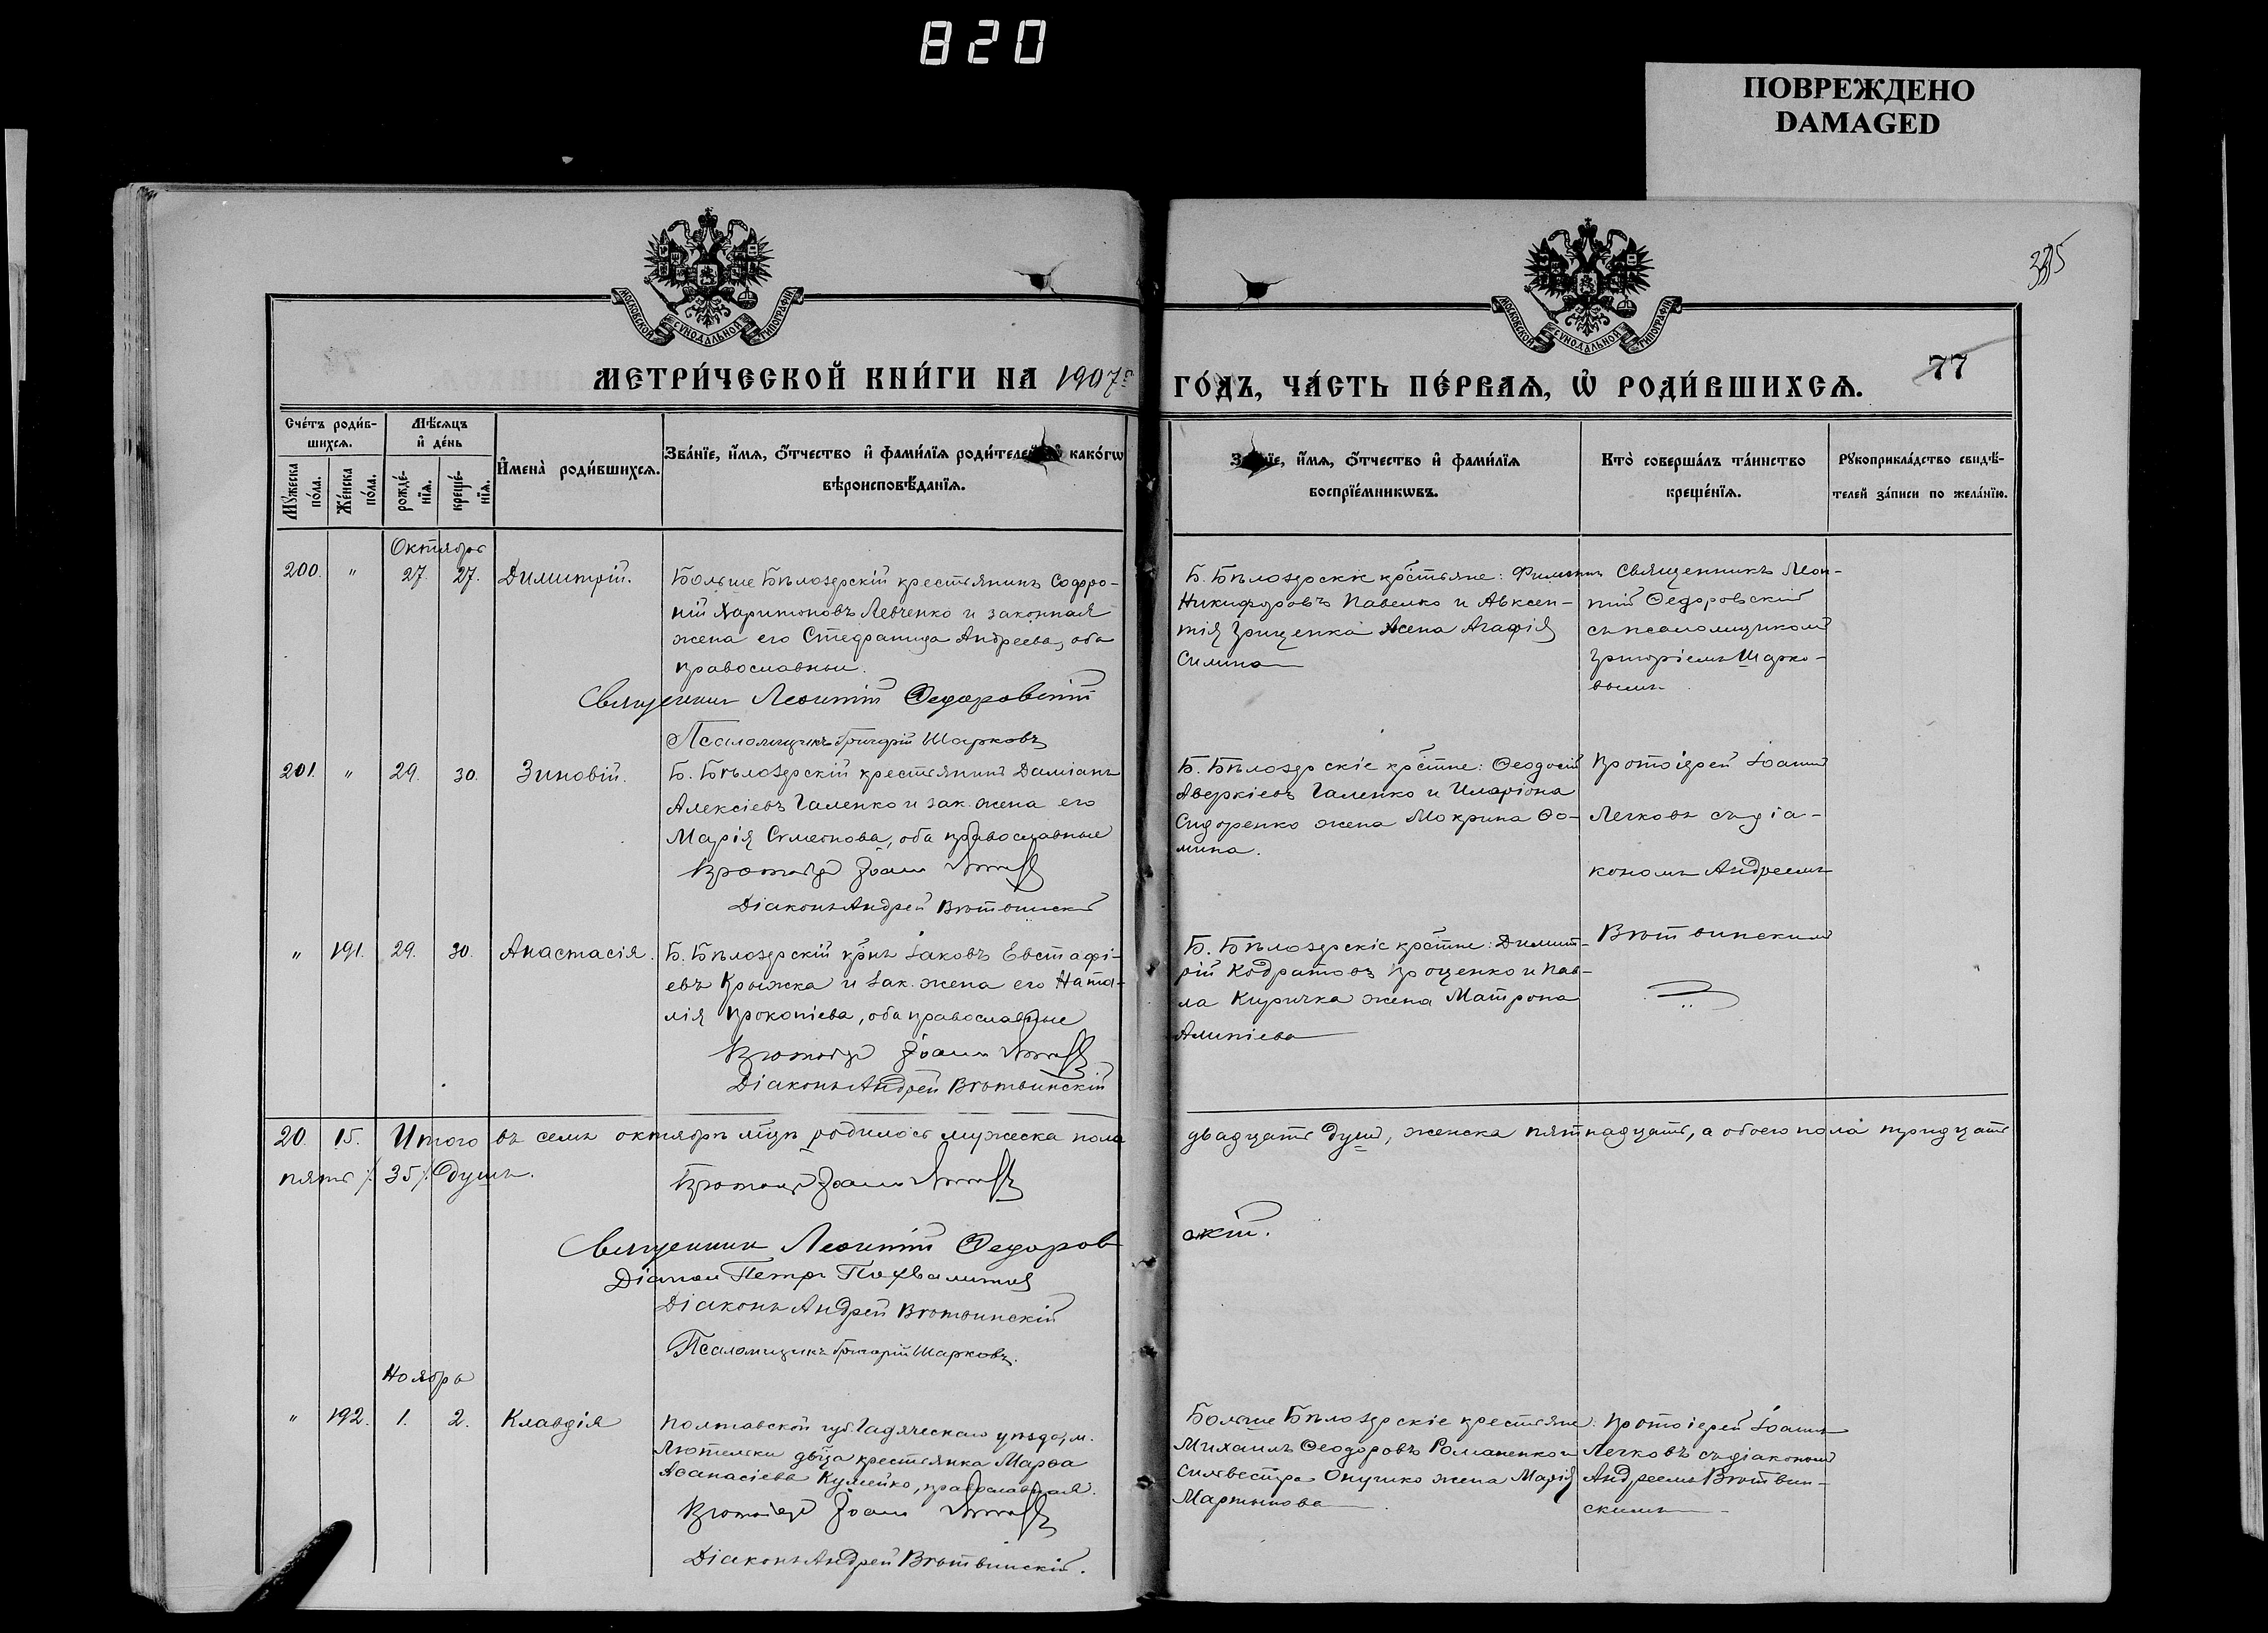 820
ПОВРЕЖДЕНО
DAMAGED
МОСКОВСКОЙ СУНОДАЛЬНОЙ ТИПОГРАФІИ
МОСКОВСКОЙ СУНОДАЛЬНОЙ ТИПОГРАФІИ
335
77
МЕТРИ́ЧЕСКОЙ КНИ́ГИ НА 1907й ГО́ДЪ, ЧА́СТЬ ПЕ́РВАѦ, Ѡ҆ РОДИ́ВШИХСѦ.
Сче́тъ роди́в-
шихсѧ.
Мꙋ́жеска по́ла.
Же́нска по́ла.
Мѣ́сѧцъ
и҆ де́нь
рожде́-
нїѧ.
креще́-
нїѧ.
И҆мена̀ роди́вшихсѧ.
Зва́нїе, и҆́мѧ, ѻ҆́тчество и҆ фами́лїѧ роди́телей и҆ како́гѡ
вѣроисповѣ́данїѧ.
Зва́нїе, и҆́мѧ, ѻ҆́тчество и҆ фами́лїѧ
воспрїе́мникѡвъ.
Кто̀ соверша́лъ та́инство
креще́нїѧ.
Рꙋкоприкла́дство свидѣ́-
телей за́писи по жела́нїю.
Октябрь
200. " 27. 27. Димитрій.
Больше Бѣлозерскій крестьянинъ Софро-
ній Харитоновъ Левченко и законная
жена его Стефанида Андреева, оба
православные.
Священник Леонтій Федоровскій
Псаломщикъ Григорій Шарковъ
Б. Бѣлозерскіе крестьяне:
Никифоровъ Павелко и Авксен-
тія Грищенка жена Агафія
Силина
Священникъ Леон-
тій Федоровскій
съ псаломщикомъ
Григоріемъ Шарко-
вымъ
201. " 29. 30. Зиновій.
Б. Бѣлозерскій крестьянинъ Даміанъ
Алексіевъ Галенко и зак. жена его
Марія Симеонова, оба православные
Протоіер Іоанн Легков
Діаконъ Андрей Витвинскій
Б. Бѣлозерскіе крестне: Феодосій
Аверкіевъ Галенко и Иларіона
Сидоренко жена Мокрина Ѳо-
мина.
Протоіерей Іоаннъ
Легковъ съ діа-
кономъ Андреемъ
Витвинскимъ
" 191. 29. 30. Анастасія.
Б. Бѣлозерскій крнъ Іаковъ Евстафі-
евъ Крыжка и зак. жена его Ната-
лія Прокопіева, оба православные
Протоіер Іоанн Легков
Діаконъ Андрей Витвинскій
Б. Бѣлозерскіе крестне: Димит-
рій Кодратовъ Проценко и Пав-
ла Киричка жена Матрона
Алипіева
20. 15. Итого въ семъ октябрѣ мцѣ родилось мужеска пола двадцать душъ, женска пятнадцать, а обоего пола тридцать
пять /35/ душъ.
Протоіер Іоанн Легков
Священник Леонтій Федоровскій.
Діакон Петр Похвалитый
Діаконъ Андрей Витвинскій
Псаломщикъ Григорій Шарковъ.
Ноябрь
" 192. 1. 2. Клавдія
Полтавской губ. Гадяческаго уѣзда, м.
Лютеньки двца крестьянка Марѳа
Аѳанасіева Кулейко, православная.
Протоіер Іоанн Легков
Діаконъ Андрей Витвинскій.
Больше Бѣлозерскіе крестьяне:
Михаилъ Феодоровъ Романенко и
Силвестра Онушко жена Марія
Мартинова
Протоіерей Іоаннъ
Легковъ съ діакономъ
Андреемъ Витвин-
скимъ